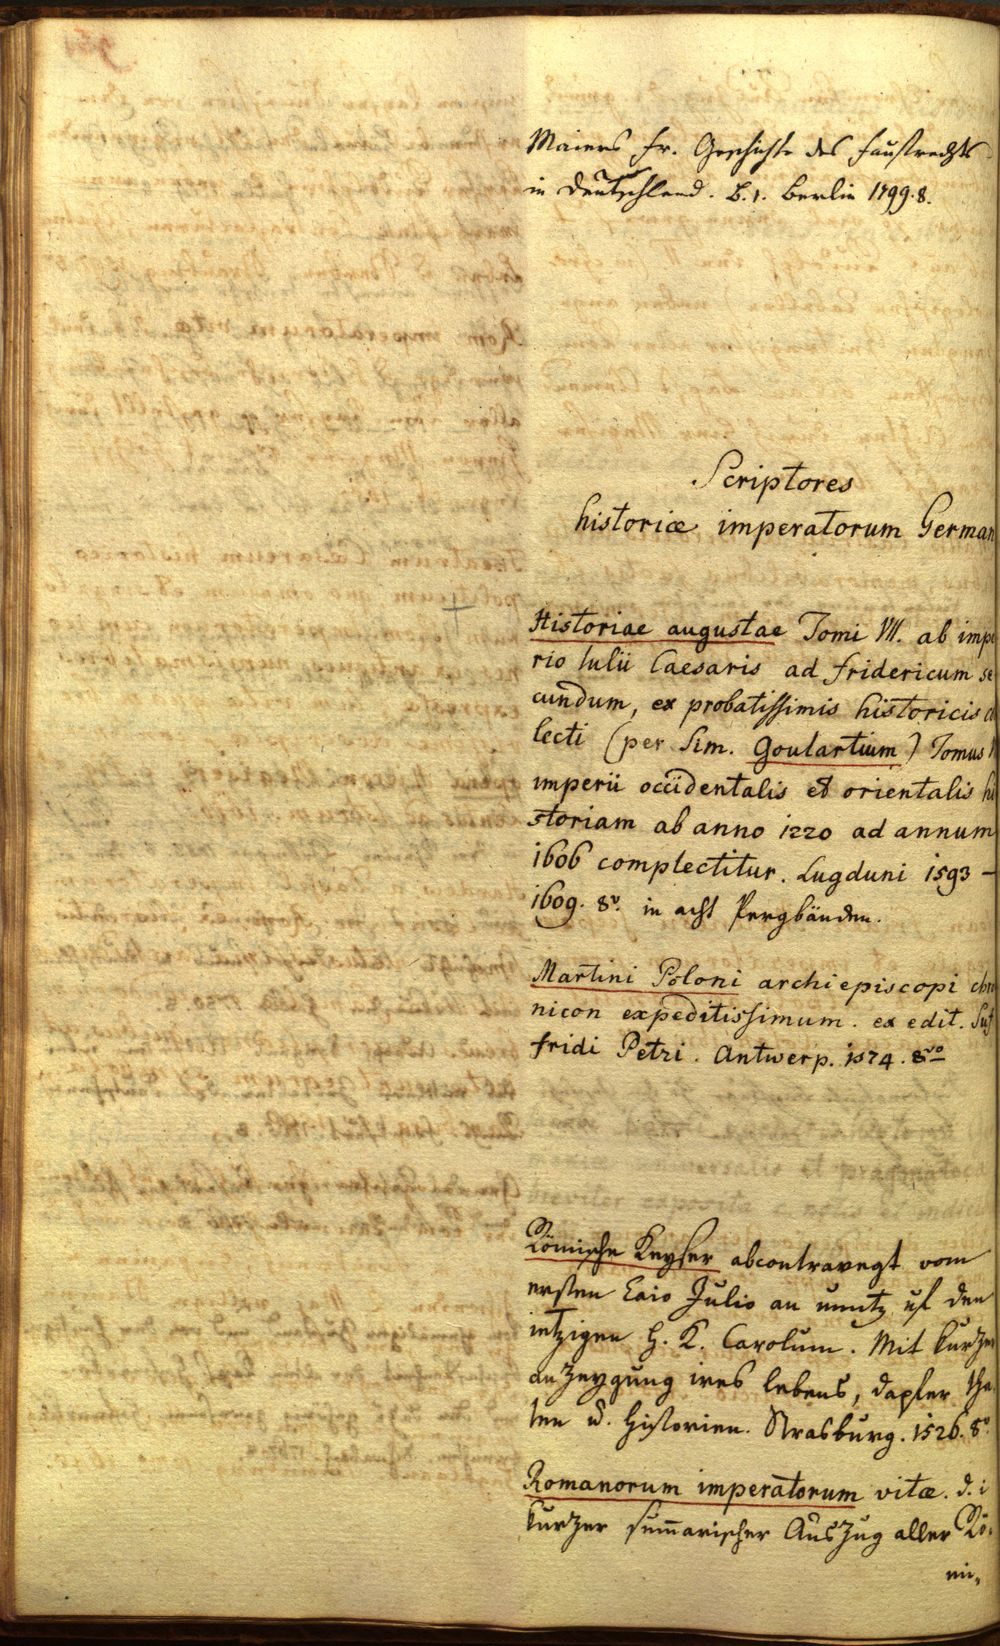 Maiers Fr. Geschichte des Faustrechts
in Deutschland. B. 1. Berlin 1799. 8.
Scriptores
historicæ imperatorum German
Historiae augustae Tomi VII. ab impe
rio Iulii Caesaris ad fridericum se
cundum, ex probatissimis historicis co
lecti (per Sim. Goulartium) Tomus
imperii occidentalis et orientalis hi
storiam ab anno 1220 ad annum
1606 complectitur. Lugduni 1593 –
1609. 8º. in acht Pergbänden.
Martini Poloni archiepiscopi chro
nicon expeditissimum. ex edit. Suf
fridi Petri. Antwerp. 1574. 8vo
Römische Keyser abcontravegt vom
ersten Caio Julio an untz uf den
ietzigen H. K. Carolum. Mit kurzer
anzeygung ires lebens, dapfer tha
ten u. Historien. Strasburg. 1526. 8º
Romanorum imperatorum vitæ. d. i
kurzer sum̄arischer Auszug aller Rö-
mi-